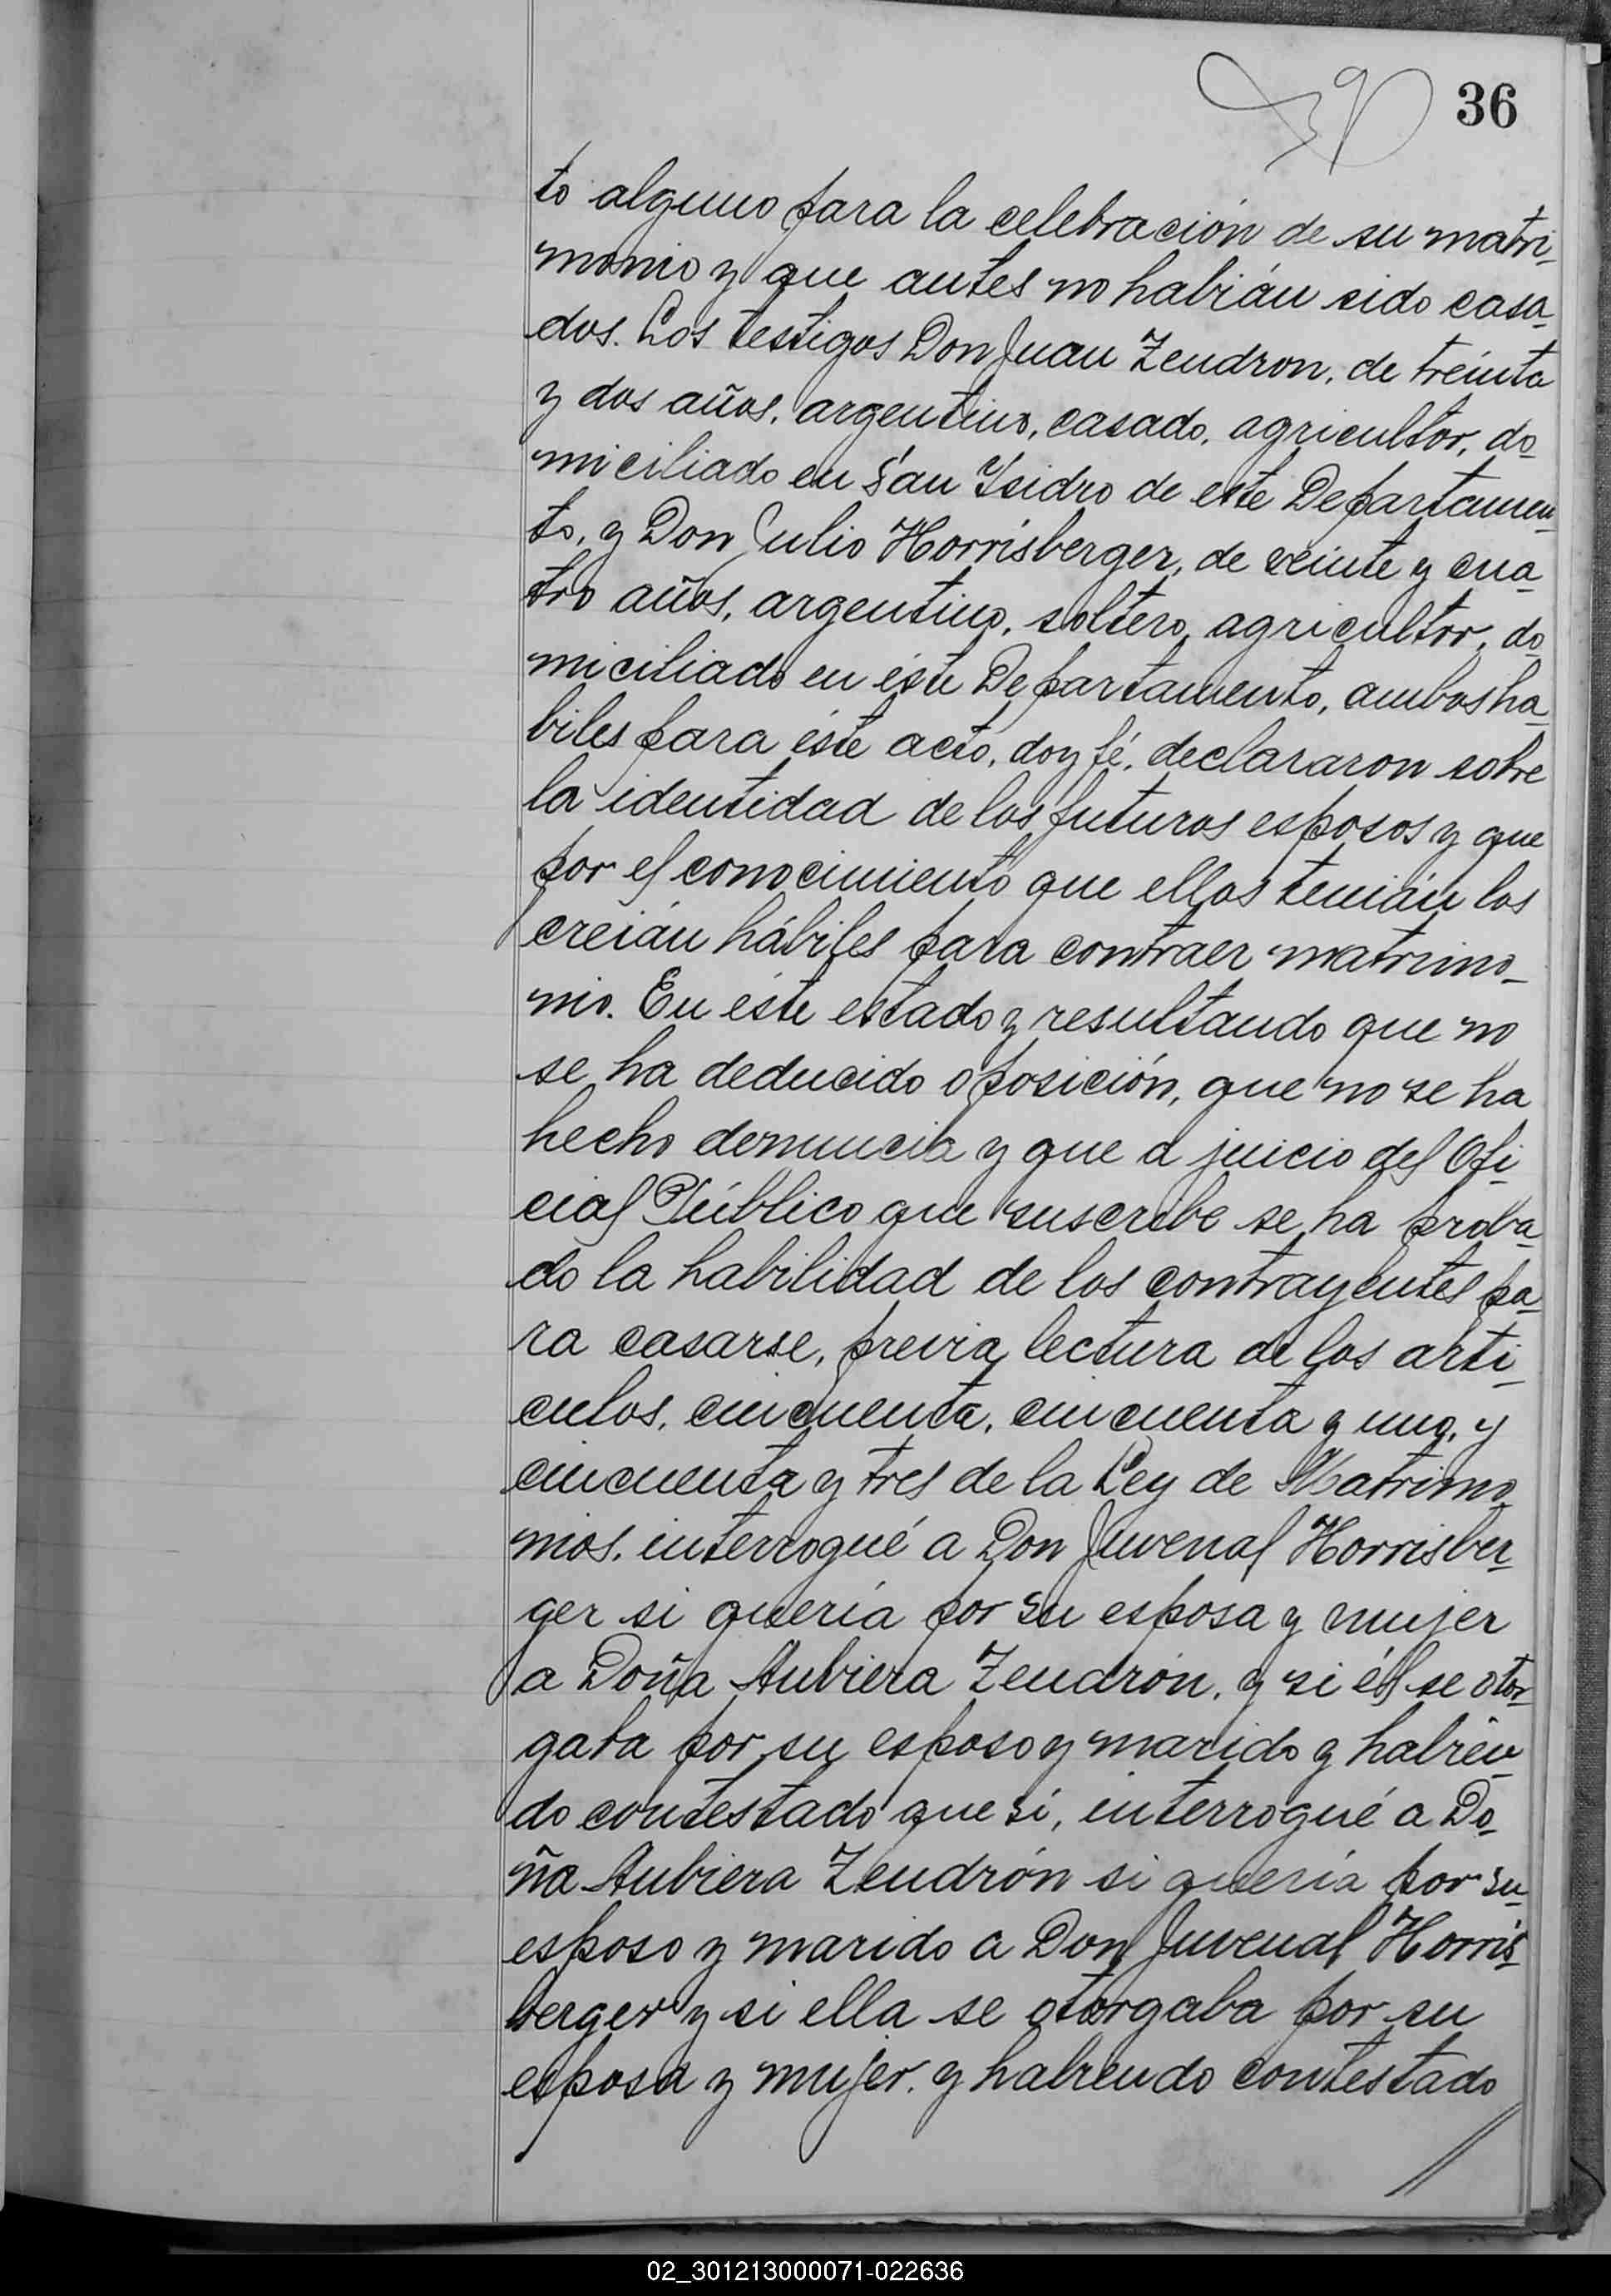 36
to alguno para la celebración de su matri_
monio y que antes no habián sido casa_
dos. Los testigos Don Juan Zendron, de treinta
y dos años, argentino, casado, agricultor, do_
miciliado en San Isidro de este Departamen_
to, y Don Julio Horrisberger, de veinte y cua_
tro años, argentino, soltero, agricultor, do_
miciliado en éste Departamento, ambos ha_
biles para éste acto, doy fé, declararon sobre
la identidad de los futuros esposos y que
por el conocimiento que ellos tenián los
creián hábiles para contraer matrimo_
nio. En éste estado y resultando que no
se ha deducido oposición, que no se ha
hecho denuncia y que a juicio del Ofi_
cial Público que suscribe se ha proba_
do la habilidad de los contrayentes pa_
ra casarse, previa lectura de los arti_
culos, cincuenta, cincuenta y uno, y
cincuenta y tres de la Ley de Matrimo_
nios, interrogué a Don Juvenal Horrisber_
ger si quería por su esposa y mujer
a Doña Aubiera Zendrón, y si él se otor_
gaba por su esposo y marido y habien_
do contestado que sí, interrogué a Do_
ña Aubiera Zendrón si quería por su
esposo y marido a Don Juvenal Horris_
berger y si ella se otorgaba por su
esposa y mujer, y habiendo contestado
02_301213000071-022636